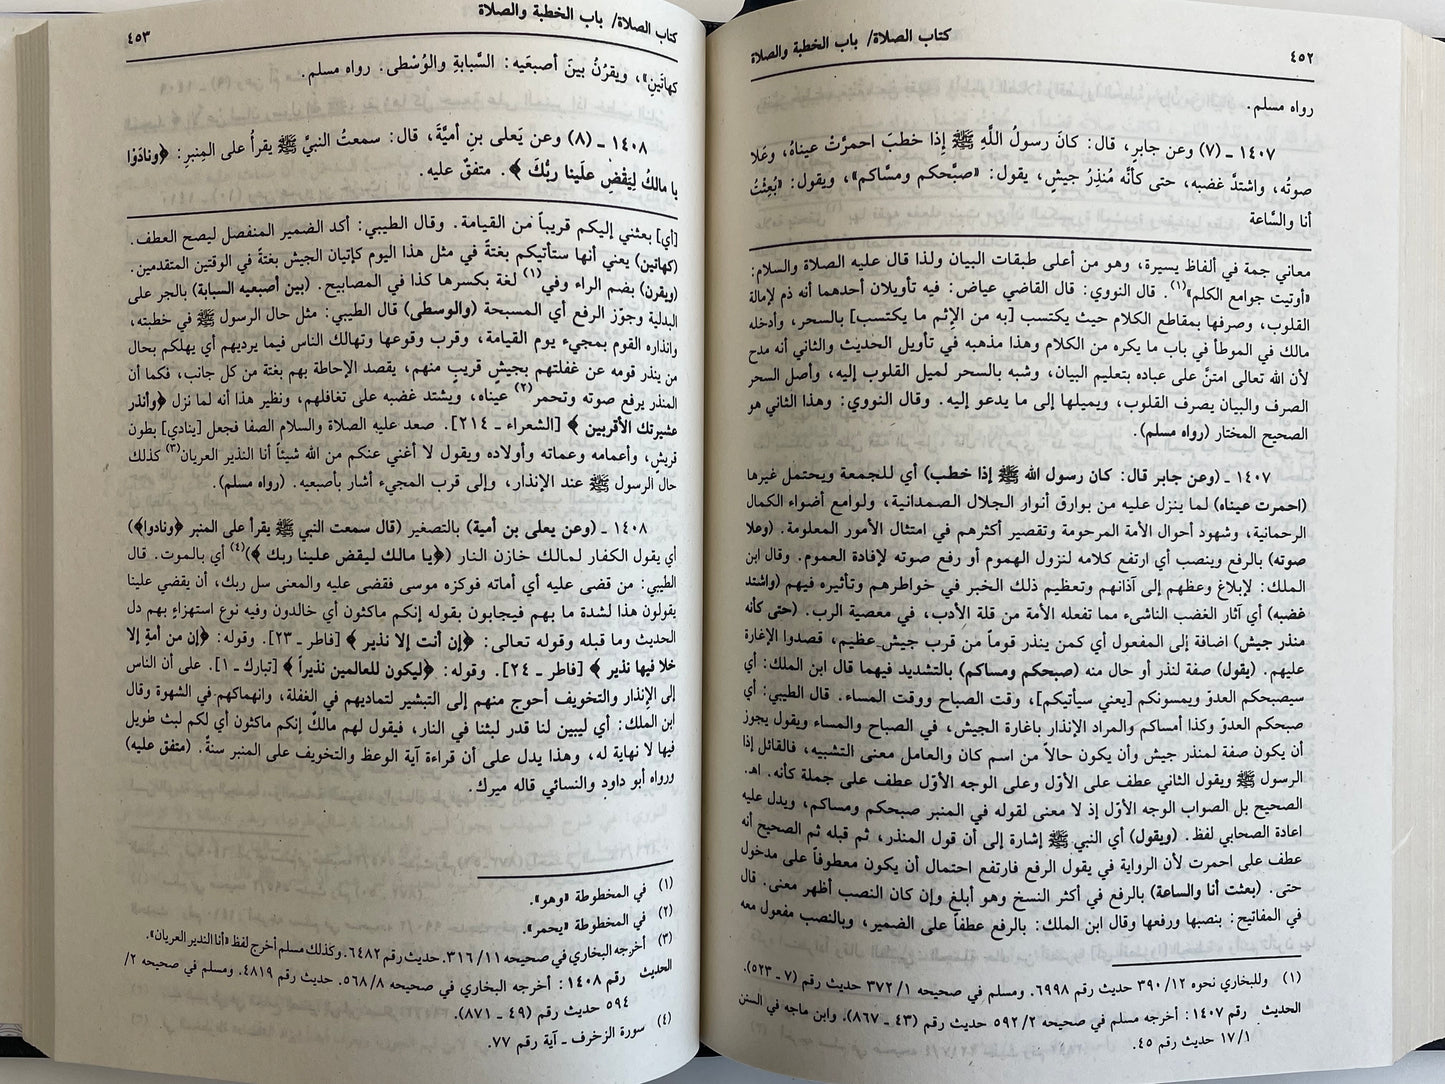 ٤٥٢
كتاب الصلاة/ باب الخطبة والصلاة
رواه مسلم.
١٤٠٧ ـ (٧) وعن جابرٍ، قال: كانَ رسولُ اللَّهِ ﷺ إِذا خطبَ احمرَّتْ عيناهُ، وعَلا
صوتُه، واشتدَّ غضبه، حتى كأنَّه مُنذِرُ جيشٍ، يقول: «صبَّحكم ومسَّاكم»، ويقول: «بُعِثْتُ
أنا والسَّاعة
معاني جمة في ألفاظ يسيرة، وهو من أعلى طبقات البيان ولذا قال عليه الصلاة والسلام:
«أوتيت جوامع الكلم»(١). قال النووي: قال القاضي عياض: فيه تأويلان أحدهما أنه ذم لإمالة
القلوب، وصرفها بمقاطع الكلام حيث يكتسب [به من الإِثم ما يكتسب] بالسحر، وأدخله
مالك في الموطأ في باب ما يكره من الكلام وهذا مذهبه في تأويل الحديث والثاني أنه مدح
لأن الله تعالى امتنَّ على عباده بتعليم البيان، وشبه بالسحر لميل القلوب إليه، وأصل السحر
الصرف والبيان يصرف القلوب، ويميلها إلى ما يدعو إليه. وقال النووي: وهذا الثاني هو
الصحيح المختار (رواه مسلم).
١٤٠٧ ـ (وعن جابر قال: كان رسول الله ﷺ إذا خطب) أي للجمعة ويحتمل غيرها
(احمرت عيناه) لما ينزل عليه من بوارق أنوار الجلال الصمدانية، ولوامع أضواء الكمال
الرحمانية، وشهود أحوال الأمة المرحومة وتقصير أكثرهم في امتثال الأمور المعلومة. (وعلا
صوته) بالرفع وينصب أي ارتفع كلامه لنزول الهموم أو رفع صوته لإفادة العموم. وقال ابن
الملك: لإبلاغ وعظهم إلى آذانهم وتعظيم ذلك الخبر في خواطرهم وتأثيره فيهم (واشتد
غضبه) أي آثار الغضب الناشىء مما تفعله الأمة من قلة الأدب، في معصية الرب. (حتى كأنه
منذر جيش) اضافة إلى المفعول أي كمن ينذر قوماً من قرب جيش عظيم، قصدوا الإغارة
عليهم. (يقول) صفة لنذر أو حال منه (صبحكم ومساكم) بالتشديد فيهما قال ابن الملك: أي
سيصبحكم العدوّ ويمسونكم [يعني سيأتيكم]، وقت الصباح ووقت المساء. قال الطيبي: أي
صبحكم العدوّ وكذا أمساكم والمراد الإنذار باغارة الجيش، في الصباح والمساء ويقول يجوز
أن يكون صفة لمنذر جيش وأن يكون حالاً من اسم كان والعامل معنى التشبيه، فالقائل إذا
الرسول ﷺ ويقول الثاني عطف على الأوّل وعلى الوجه الأوّل عطف على جملة كأنه. اهـ.
الصحيح بل الصواب الوجه الأوّل إذ لا معنى لقوله في المنبر صبحكم ومساكم، ويدل عليه
اعادة الصحابي لفظ. (ويقول) أي النبي ﷺ إشارة إلى أن قول المنذر، ثم قبله ثم الصحيح أنه
عطف على احمرت لأن الرواية في يقول الرفع فارتفع احتمال أن يكون معطوفاً على مدخول
حتى. (بعثت أنا والساعة) بالرفع في أكثر النسخ وهو أبلغ وإن كان النصب أظهر معنى. قال
في المفاتيح: بنصبها ورفعها وقال ابن الملك: بالرفع عطفاً على الضمير، وبالنصب مفعول معه
(١) وللبخاري نحوه ١٢/ ٣٩٠ حديث رقم ٦٩٩٨. ومسلم في صحيحه ١/ ٣٧٢ حديث رقم (٧ ـ ٥٢٣).
الحديث رقم ١٤٠٧: أخرجه مسلم في صحيحه ٢/ ٥٩٢ حديث رقم (٤٣ ـ ٨٦٧). وابن ماجه في السنن
١/ ١٧ حديث رقم ٤٥.
كتاب الصلاة/ باب الخطبة والصلاة
٤٥٣
كهاتَينِ»، ويقرُنُ بينَ أصبعَيه: السَّبابةِ والوُسْطى. رواه مسلم.
١٤٠٨ ـ (٨) وعن يَعلى بنِ أميَّةَ، قال: سمعتُ النبيَّ ﷺ يقرأُ على المِنبرِ: ﴿ونادَوْا
يا مالكُ لِيَقْضِ علَينا ربُّكَ ﴾. متفقٌ عليه.
[أي] بعثني إليكم قريباً من القيامة. وقال الطيبي: أكد الضمير المنفصل ليصح العطف.
(كهاتين) يعني أنها ستأتيكم بغتةً في مثل هذا اليوم كإتيان الجيش بغتةً في الوقتين المتقدمين.
(ويقرن) بضم الراء وفي(١) لغة بكسرها كذا في المصابيح. (بين أصبعيه السبابة) بالجر على
البدلية وجوّز الرفع أي المسبحة (والوسطى) قال الطيبي: مثل حال الرسول ﷺ في خطبته،
وانذاره القوم بمجيء يوم القيامة، وقرب وقوعها وتهالك الناس فيما يرديهم أي يهلكم بحال
من ينذر قومه عن غفلتهم بجيشٍ قريبٍ منهم، يقصد الإحاطة بهم بغتة من كل جانب، فكما أن
المنذر يرفع صوته وتحمر(٢) عيناه، ويشتد غضبه على تغافلهم، ونظير هذا أنه لما نزل ﴿وأنذر
عشيرتك الأقربين ﴾ [الشعراء ـ ٢١٤]. صعد عليه الصلاة والسلام الصفا فجعل [ينادي] بطون
قريش، وأعمامه وعماته وأولاده ويقول لا أغني عنكم من الله شيئاً أنا النذير العريان(٣) كذلك
حال الرسول ﷺ عند الإنذار، وإلى قرب المجيء أشار بأصبعيه. (رواه مسلم).
١٤٠٨ ـ (وعن يعلى بن أمية) بالتصغير (قال سمعت النبي ﷺ يقرأ على المنبر ﴿ونادوا﴾)
أي يقول الكفار لمالك خازن النار (﴿يا مالك ليقض علينا ربك ﴾)(٤) أي بالموت. قال
الطيبي: من قضى عليه أي أماته فوكزه موسى فقضى عليه والمعنى سل ربك، أن يقضي علينا
يقولون هذا لشدة ما بهم فيجابون بقوله إنكم ماكثون أي خالدون وفيه نوع استهزاءٍ بهم دل
الحديث وما قبله وقوله تعالى: ﴿إن أنت إلا نذير ﴾ [فاطر ـ ٢٣]. وقوله: ﴿إن من أمةٍ إلا
خلا فيها نذير ﴾ [فاطر ـ ٢٤]. وقوله: ﴿ليكون للعالمين نذيراً ﴾ [تبارك ـ ١]. على أن الناس
إلى الإنذار والتخويف أحوج منهم إلى التبشير لتماديهم في الغفلة، وانهماكهم في الشهوة وقال
ابن الملك: أي ليبين لنا قدر لبثنا في النار، فيقول لهم مالكٌ إنكم ماكثون أي لكم لبث طويل
فيها لا نهاية له، وهذا يدل على أن قراءة آية الوعظ والتخويف على المنبر سنةٌ. (متفق عليه)
ورواه أبو داود والنسائي قاله ميرك.
(١) في المخطوطة «وهو».
(٢) في المخطوطة «يحمر».
(٣) أخرجه البخاري في صحيحه ١١/ ٣١٦. حديث رقم ٦٤٨٢. وكذلك مسلم أخرج لفظ «أنا النذير العريان».
الحديث رقم ١٤٠٨: أخرجه البخاري في صحيحه ٨/ ٥٦٨. حديث رقم ٤٨١٩. ومسلم في صحيحه ٢/
٥٩٤ حديث رقم (٤٩ ـ ٨٧١).
(٤) سورة الزخرف ـ آية رقم ٧٧.